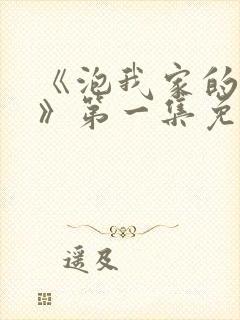 《泡我家的
》第一集免
遥及